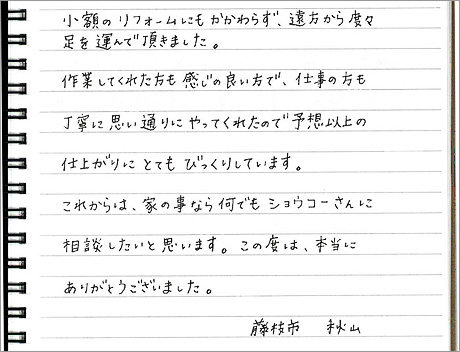 小額のリフォームにもかかわらず、遠方から度々
足を運んで頂きました。
作業してくれた方も感じの良い方で、仕事の方も
丁寧に思い通りにやってくれたので予想以上の
仕上がりにとてもびっくりしています。
これからは、家の事なら何でもショウコーさんに
相談したいと思います。この度は、本当に
ありがとうございました。
藤枝市 秋山